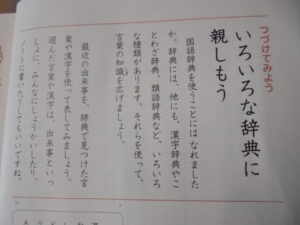 つづけてみよう
いろいろな辞典に
親しもう
国語辞典を使うことには なれました
か。辞典には、他にも、漢字辞典やこ
とわざ辞典、類語辞典など、いろいろ
な種類があります。それらを使って、
言葉の知識を広げましょう。
最近の出来事を、辞典で見つけた言
葉や漢字を使って表してみましょう。
選んだ言葉や漢字は、出来事といっ
しょに、みんなにしょうかいしたり、
ノートに書いたりしてもいいですね。